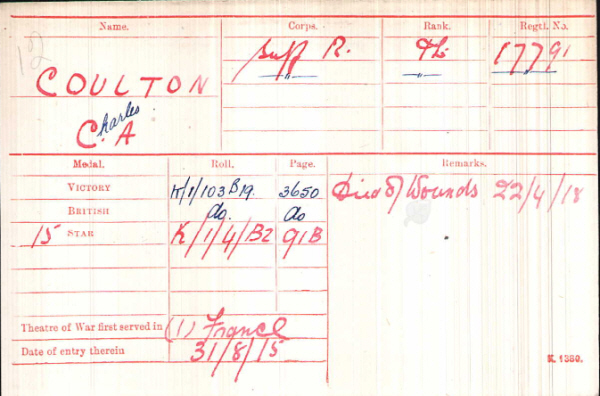 Name. Corps. Rank. Regtl. No.
COULTON Suff R. 17791
Charles
C. A " "
Medal. Roll. Page. Remarks.
VICTORY K/1/103B19. 3650 Died of Wounds 22/4/18
BRITISH do. do
15 STAR K/1/4/B2 91B
Theatre of War first served in (1) France
Date of entry therein 31/8/15
K. 1380.